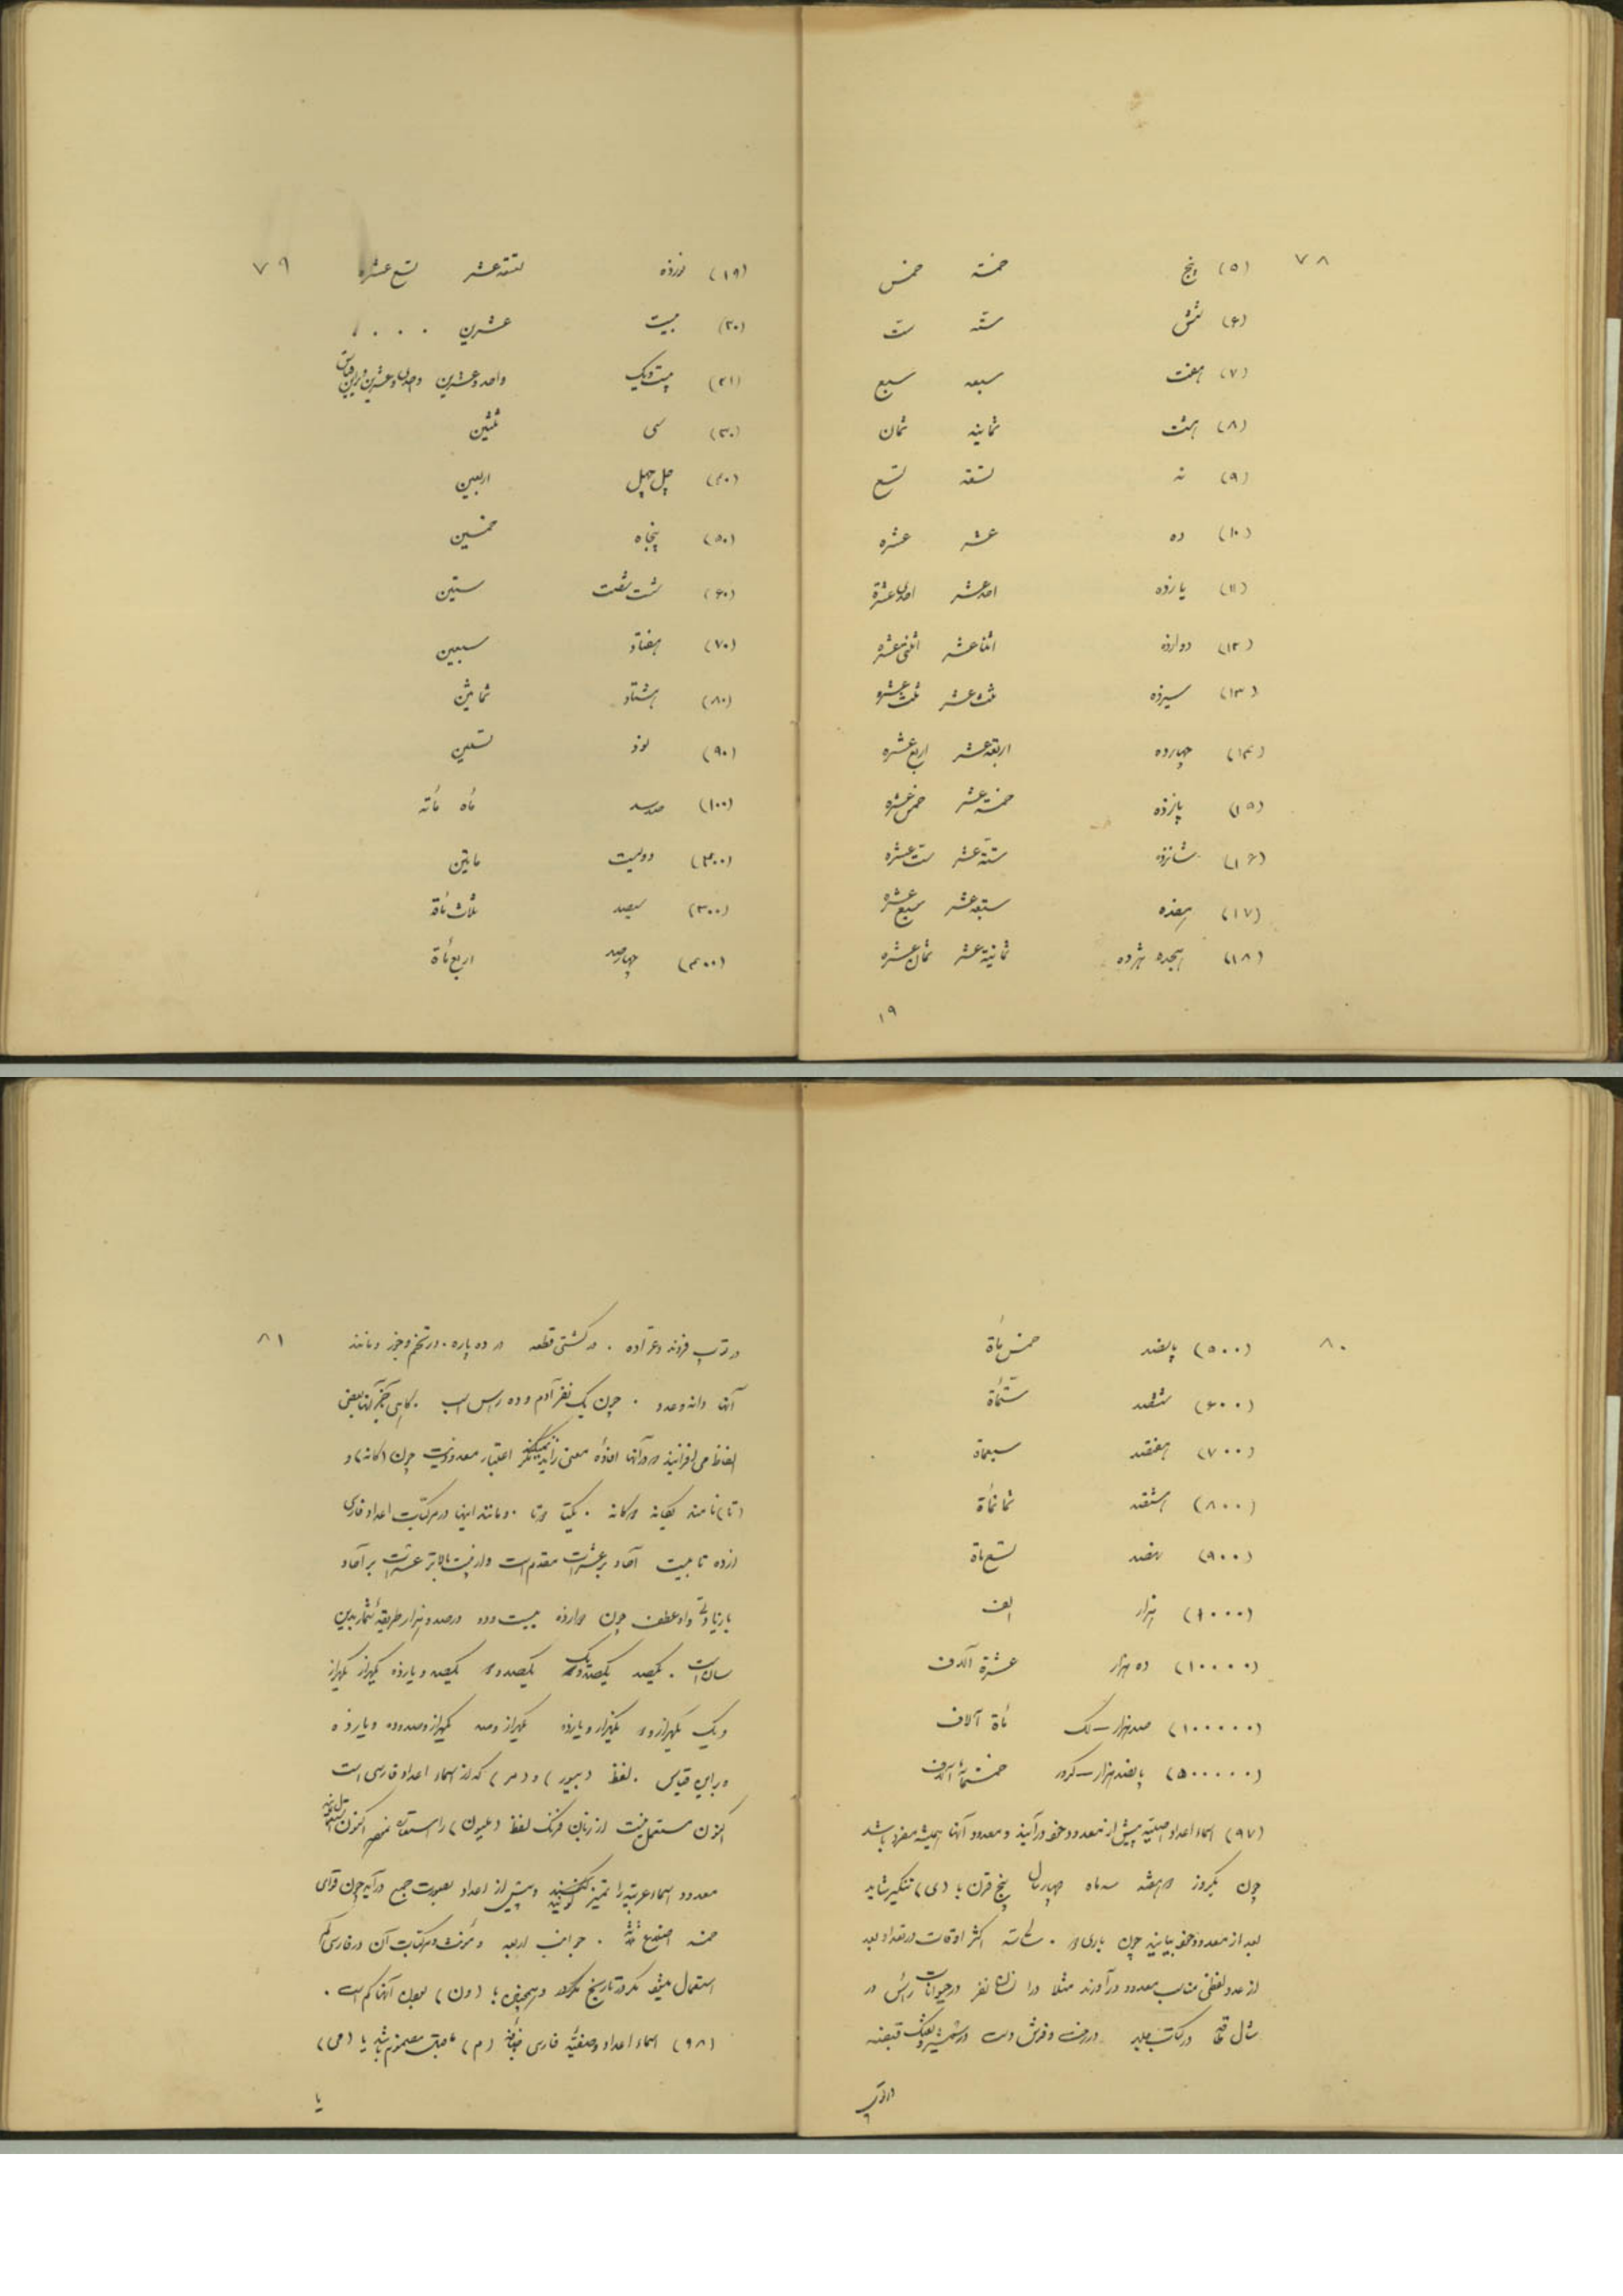 ۷۸
(۵) پنج خمسة خمس
(۶) شش ستّه ستّ
(۷) هفت سبعه سبع
(۸) هشت ثمانیه ثمان
(۹) نه تسعه تسع
(۱۰) ده عشر عشره
(۱۱) یازده احد عشر احدی عشرة
(۱۲) دوازده اثنا عشر اثنی عشره
(۱۳) سیزده ثلثه عشر ثلث عشره
(۱۴) چهارده اربعة عشر اربع عشره
(۱۵) پانزده خمسة عشر خمس عشره
(۱۶) شانزده ستّة عشر ستّ عشره
(۱۷) هفده سبعة عشر سبع عشره
(۱۸) هیجده هژده ثمانیة عشر ثمان عشره
۱۹
۷۹
(۱۹) نوزده تسعة عشر تسع عشره
(۲۰) بیست عشرین . . . .
(۲۱) بیست و یک واحد و عشرین واحدی و عشرین و براین قیاس
(۳۰) سی ثلثین
(۴۰) چل چهل اربعین
(۵۰) پنجاه خمسین
(۶۰) شست شصت ستین
(۷۰) هفتاد سبعین
(۸۰) هشتاد ثمانین
(۹۰) نود تسعین
(۱۰۰) صد سد مأه مأته
(۲۰۰) دویست مایتین
(۳۰۰) سیصد ثلاث مأة
(۴۰۰) چهارصد اربع مأة
۸۰
(۵۰۰) پانصد خمس مأة
(۶۰۰) ششصد ستّمأة
(۷۰۰) هفتصد سبعماة
(۸۰۰) هشتصد ثمانمأة
(۹۰۰) نهصد تسع ماة
(۱۰۰۰) هزار الف
(۱۰۰۰۰) ده هزار عشرة آلاف
(۱۰۰۰۰۰) صد هزار – لک مأة آلاف
(۵۰۰۰۰۰) پانصد هزار – کرور خمسمائة آلاف
(۹۷) اسماء اعداد اصلیّه پیش از معدود خود درآیند و معدود آنها همیشه مفرد باشد
چون یکروز دو هفته سه ماه چهار سال پنج قرن با (ی) تنکیر شاید
بعد از معدود خود بیایند چون باری دو . اکثر اوقات در تعداد بعد
از عدد لفظی مناسب معدود درآورند مثلا در انسان نفر در حیوانات رأس در
شال طاقه در کتاب جلد در رخت و فرش دست در شمشیر و تفنگ قبضه
در توپ
۸۱
در توپ فروند و عرّاده . در کشتی قطعه در ده پاره . در تخم و جوز و مانند
آنها دانه و عدد . چون یک نفر آدم و ده رأس اسب . گاهی بعضی
الفاظ می افزایند و در آنها افادهٔ معنی زاید نمیکند اعتبار معدودیت چون (گانه) و
(تا) نامند یگانه دوگانه . یکتا دوتا . و مانند اینها در مرکّبات اعداد فارسی
از ده تا بیست آحاد بر عشرات مقدم است و از بیست بالاتر عشرات بر آحاد
با زیادتی واو عطف چون دوازده بیست و دو در صد و هزار طریقهٔ شمار بدین
سان است . یکصد یکصد و یک یکصد و دو یکصد و یازده یکهزار یکهزار
و یک یکهزار و دو یکهزار و یازده یکهزار و صد یکهزار و صد و ده و یازده
و براین قیاس . لفظ (بیور) و (مر) که از اسماء اعداد فارسی است
اکنون مستعمل نیست از زبان فرنگ لفظ (ملیون) را
معدود اسماء عربیّه را تمیز و پیش از اعداد بصورت جمع درآید چون قوای
خمسه اضلاع ثلثه . جوانب اربعه و مؤنث و مرکّبات آن در فارسی کم
استعمال میشود مگر در تاریخ و همچنین با (ون) بودن آنها کم است .
(۹۸) اسماء اعداد وصفیّهٔ فارسی (م) ماقبل مضموم باشد یا (می)
یا